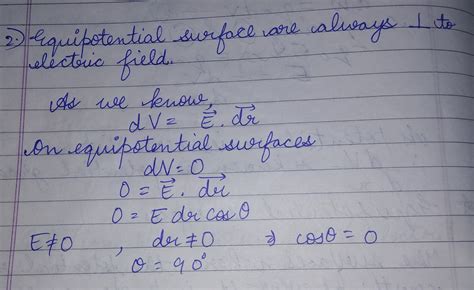 2.) Equipotential surface are always ⊥ to
electric field.
As we know,
dV = E⃗ . dr⃗
On equipotential surfaces
dV = 0
0 = E⃗ . dr⃗
0 = E dr cos θ
E ≠ 0 , dr ≠ 0 ⇒ cosθ = 0
θ = 90°